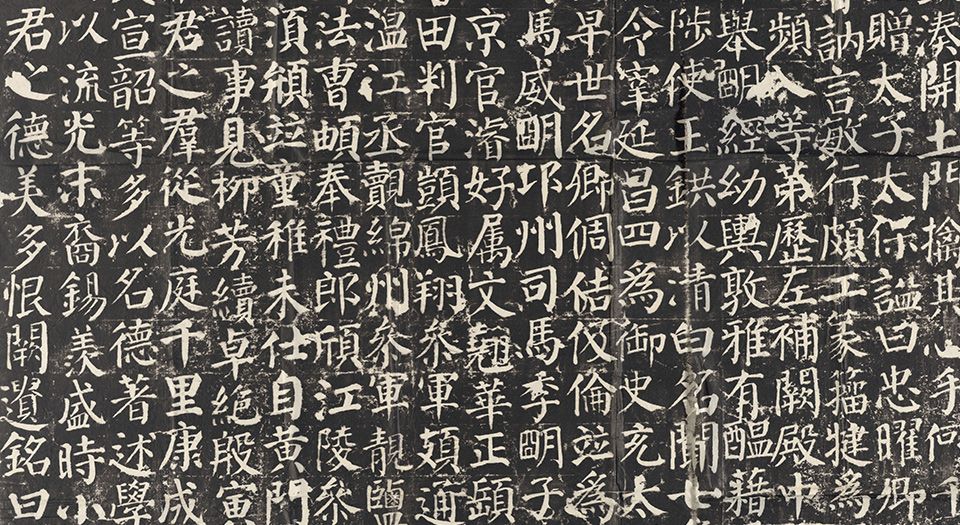 湊開土門擒其心手何千
贈太子太保諡曰忠曜卿
訥言敏行頗工篆籀犍為
頻入等第歷左補闕殿中
舉朙經幼輿敦雅有醞藉
陟使王鉷以清白名聞士
令宰延昌四為御史充太
早世名卿倜佶伋倫竝為
馬威朙邛州司馬季朙子
京官濬好属文翹華正頣
田判官顗鳳翔參軍頍通
温江丞覿綿州參軍靚鹽
法曹頔奉禮郎頎江陵參
須頠竝童稚未仕自黃門
讀事見柳芳續卓絕殷寅
君之羣從光庭千里康成
宣韶等多以名德著述學
以流光末裔錫羨盛時小
君之德美多恨闕遺銘曰